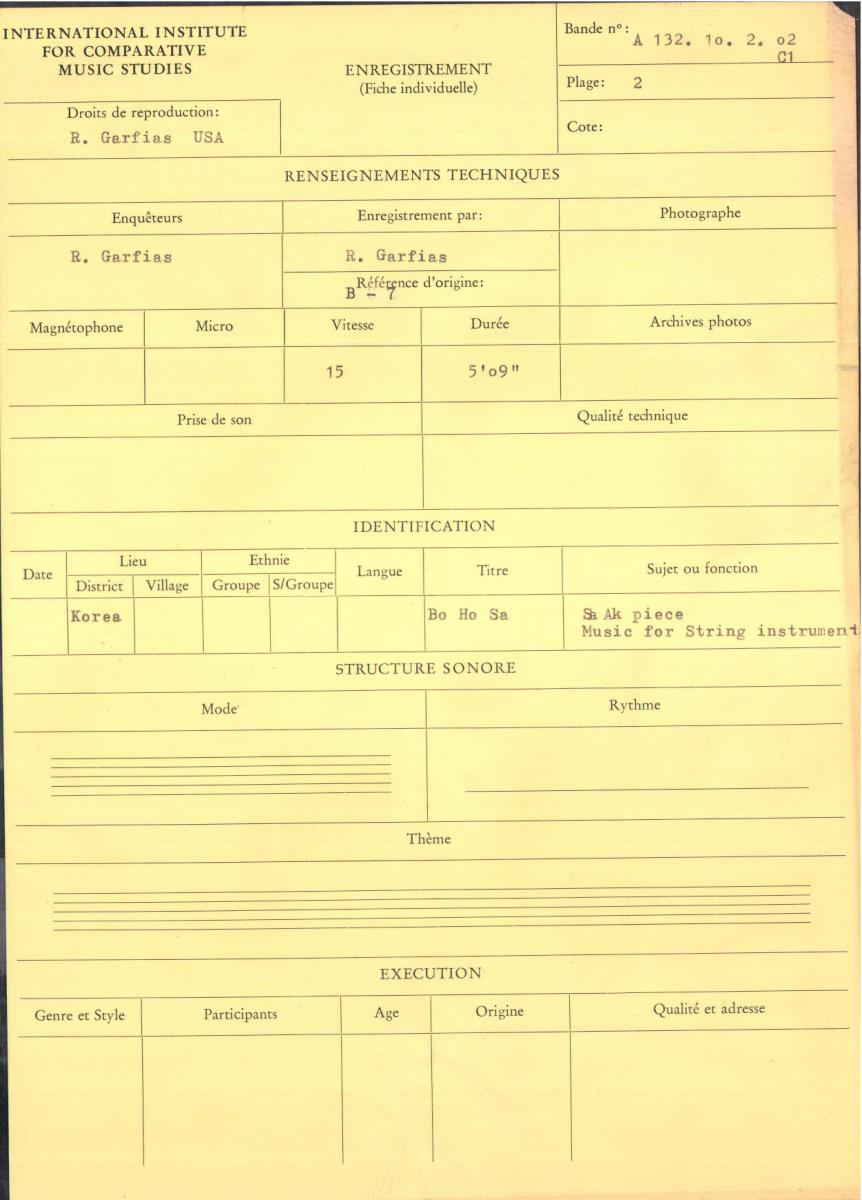 INTERNATIONAL INSTITUTE
FOR COMPARATIVE
MUSIC STUDIES
Droits de reproduction:
R. Garfias USA
ENREGISTREMENT
(Fiche individuelle)
Bande nº: A 132. 1o. 2. o2
C1
Plage: 2
Cote:
RENSEIGNEMENTS TECHNIQUES
Enquêteurs
Enregistrement par:
Photographe
R. Garfias
R. Garfias
Référence d'origine:
B - 7
Magnétophone
Micro
Vitesse
Durée
Archives photos
15
5'o9"
Prise de son
Qualité technique
IDENTIFICATION
Date
Lieu
Ethnie
Langue
Titre
Sujet ou fonction
District
Village
Groupe
S/Groupe
Korea
Bo Ho Sa
Ak piece
Music for String instrument
STRUCTURE SONORE
Mode
Rythme
Thème
EXECUTION
Genre et Style
Participants
Age
Origine
Qualité et adresse